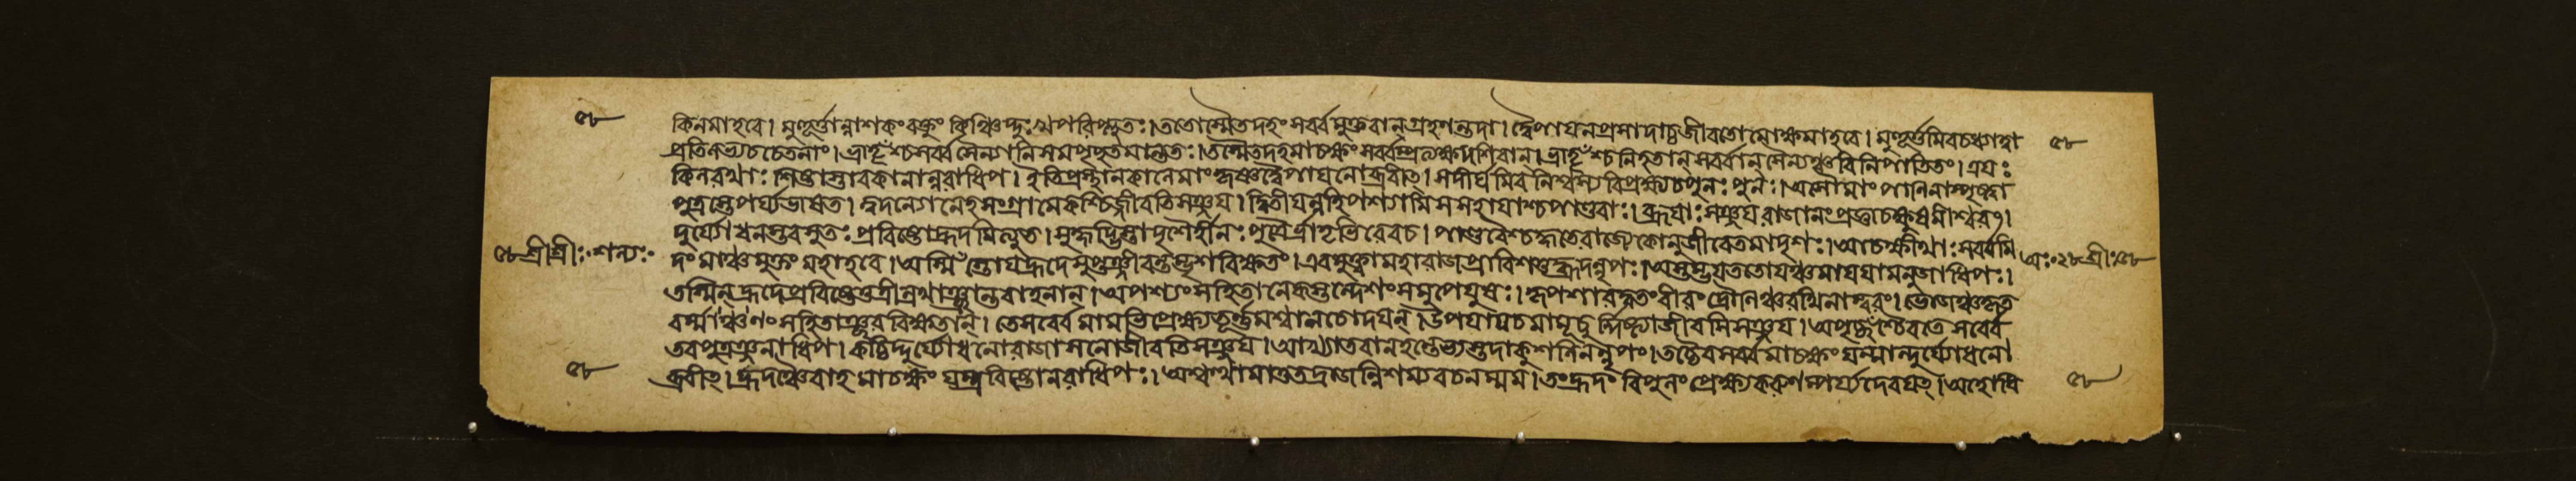 ৫৮ কিলমাহবে। মুহূর্ত্তান্নাশকং বক্তুং কিঞ্চিদ্দুঃখপরিপ্লুতঃ। ততোস্মৈতদহং সর্ব্বমুক্তবান্ গ্রহণন্তদা। দ্বৈপায়নপ্রসাদাচ্চ জীবতো মোক্ষমাহবে। মুহূর্ত্তমিব চ ধ্যাত্বা ৫৮
প্রতিলভ্য চ চেতনাং। ভ্রাতৄংশ্চ সর্ব্বসৈন্যানি সমপৃচ্ছত মান্ততঃ। তস্মৈতদহমাচক্ষং সর্ব্বম্প্রত্যক্ষদর্শিবান্। ভ্রাতৄংশ্চ নিহতান্ সর্ব্বান্ সৈন্যঞ্চ বিনিপাতিতং। ত্রয়ঃ
কিল রথাঃ শিষ্টাস্তাবকানান্নরাধিপ। ইতি প্রস্থানকালে মাং কৃষ্ণদ্বৈপায়নোব্রবীত্। স দীর্ঘমিব নিশ্বস্য বিপ্রেক্ষ্য চ পুনঃ পুনঃ। অসৌ মাং পাণিনা স্পৃষ্ট্বা
পুত্রস্তে পর্য্যভাষত। ত্বদন্যো নেহ সংগ্রামে কশ্চিজ্জীবতি সঞ্জয়। দ্বিতীয়ন্নহি পশ্যামি সসহায়াশ্চ পাণ্ডবাঃ। ব্রূয়াঃ সঞ্জয় রাজানং প্রজ্ঞাচক্ষুষমীশ্বরং।
দুর্য্যোধনস্তব সুতঃ প্রবিষ্টো হ্রদমিত্যুত। সুহৃদ্ভিস্তাদৃশৈর্হীনঃ পুত্রৈর্ভ্রাতৃভিরেব চ। পাণ্ডবৈশ্চ হৃতে রাজ্যে কো নু জীবেত মাদৃশঃ। আচক্ষীথাঃ সর্ব্বমি
৫৮ শ্রীশ্রীঃ শল্যঃ দং মাঞ্চ মুক্তং মহাহবাৎ। অস্মিংস্তোয়হ্রদে সুপ্তঞ্জীবন্তম্ভৃশবিক্ষতং। এবমুক্ত্বা মহারাজ প্রাবিশত্তং হ্রদন্নৃপঃ। অস্তম্ভয়ত তোয়ঞ্চ মায়য়া মনুজাধিপঃ। অঃ ২৮ শ্রীঃ ৫৮
তস্মিন্ হ্রদে প্রবিষ্টে তু ত্রীন্রথাঞ্ছ্রান্তবাহনান্। অপশ্যং সহিতানেকস্তন্দেশং সমুপেয়ুষঃ। কৃপং শারদ্বতং বীরং দ্রৌণিঞ্চ রথিনাম্বরং। ভোজঞ্চ কৃত
বর্ম্মাণং সহিতাঞ্ছরবিক্ষতান্। তে সর্ব্বে মামভিপ্রেক্ষ্য তূর্ণমশ্বানচোদয়ন্। উপযায় চ মামূচু র্দ্দিষ্ট্যা জীবসি সঞ্জয়। অপৃচ্ছংশ্চৈব তে সর্ব্বে
তব পুত্রঞ্জনাধিপ। কচ্চিদ্দুর্য্যোধনো রাজা স নো জীবতি সঞ্জয়। আখ্যাতবানহন্তেভ্যস্তদা কুশলিনন্নৃপং। তচ্চৈব সর্ব্বমাচক্ষং যন্মান্দুর্য্যোধনো
৫৮ ব্রবীত্। হ্রদঞ্চৈবাহমাচক্ষং যম্প্রবিষ্টো নরাধিপঃ। অশ্বত্থামা তু তদ্রাজন্নিশম্য বচনম্মম। তং হ্রদং বিপুলং প্রেক্ষ্য করুণম্পর্য্যদেবয়ত্। অহো ধি ৫৮